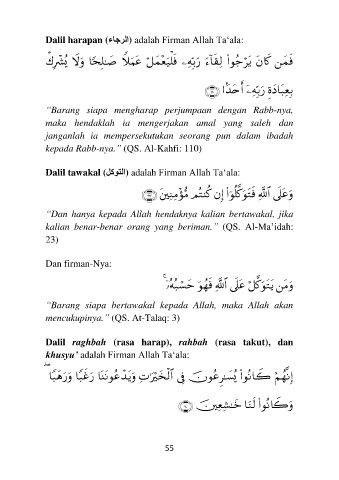 Dalil harapan (الرجاء) adalah Firman Allah Ta‘ala:
فَمَن كَانَ يَرْجُوا۟ لِقَآءَ رَبِّهِۦ فَلْيَعْمَلْ عَمَلًا صَـٰلِحًا وَلَا يُشْرِكْ
بِعِبَادَةِ رَبِّهِۦٓ أَحَدًۢا
“Barang siapa mengharap perjumpaan dengan Rabb-nya,
maka hendaklah ia mengerjakan amal yang saleh dan
janganlah ia mempersekutukan seorang pun dalam ibadah
kepada Rabb-nya.” (QS. Al-Kahfi: 110)
Dalil tawakal (التوكل) adalah Firman Allah Ta‘ala:
وَعَلَى ٱللَّهِ فَتَوَكَّلُوٓا۟ إِن كُنتُم مُّؤْمِنِينَ
“Dan hanya kepada Allah hendaknya kalian bertawakal, jika
kalian benar-benar orang yang beriman.” (QS. Al-Ma’idah:
23)
Dan firman-Nya:
وَمَن يَتَوَكَّلْ عَلَى ٱللَّهِ فَهُوَ حَسْبُهُۥٓ ۚ
“Barang siapa bertawakal kepada Allah, maka Allah akan
mencukupinya.” (QS. At-Talaq: 3)
Dalil raghbah (rasa harap), rahbah (rasa takut), dan
khusyu’ adalah Firman Allah Ta‘ala:
إِنَّهُمْ كَانُوا۟ يُسَـٰرِعُونَ فِى ٱلْخَيْرَٰتِ وَيَدْعُونَنَا رَغَبًا وَرَهَبًا ۖ
وَكَانُوا۟ لَنَا خَـٰشِعِينَ
55